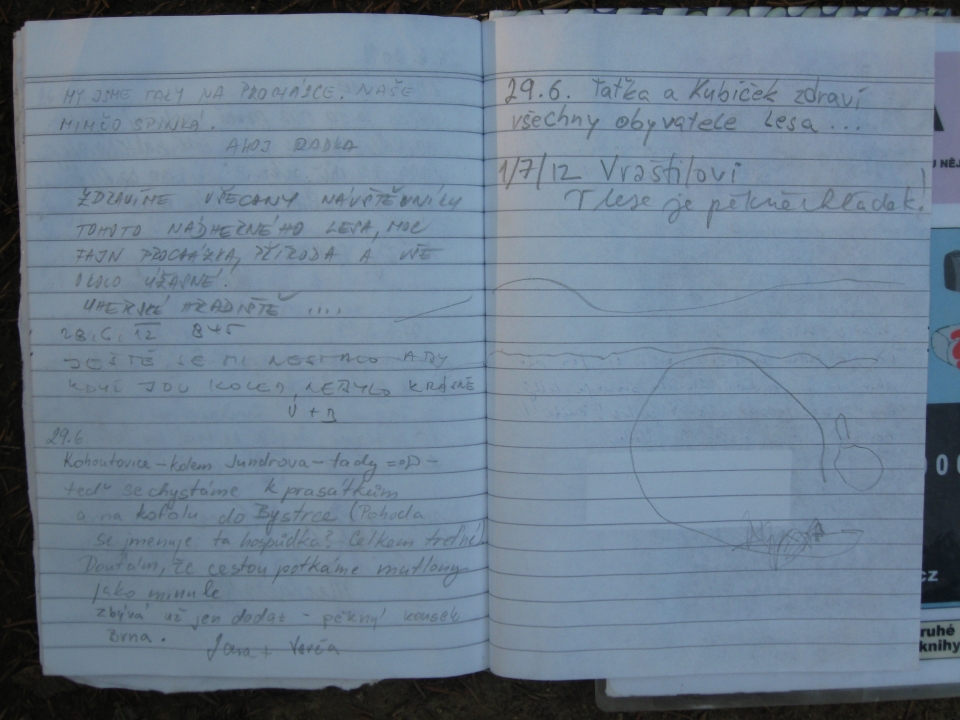 MY JSME TADY NA PROCHÁZCE. NAŠE
MIMČO SPINKÁ.
AHOJ RADKA
ZDRAVÍME VŠECHNY NÁVŠTĚVNÍKY
TOHOTO NÁDHERNÉHO LESA, MOC
FAJN PROCHÁZKA, PŘÍRODA A VŠE
OKOLO ÚŽASNÉ.
UHERSKÉ HRADIŠTĚ ....
28.6.12 845
JEŠTĚ SE MI NESTALO ABY
KDYŽ JDU KOLEM, NEBYLO KRÁSNĚ
V + B
29.6
Kohoutovice - kolem Jundrova - tady -
teď se chystáme k prasátkům
a na kofolu do Bystrce (Pohoda
se jmenuje ta hospůdka? Celkem trefné)
Doufám, že cestou potkáme muflony
jako minule
zbývá už jen dodat - pěkný kousek
Brna.
Jana + Verča
29.6. Taťka a Kubíček zdraví
všechny obyvatele lesa...
1/7/12 Vraštilovi
V lese je pěkně chládek!
A
U NĚJ
00
cz
ruhé
knihy